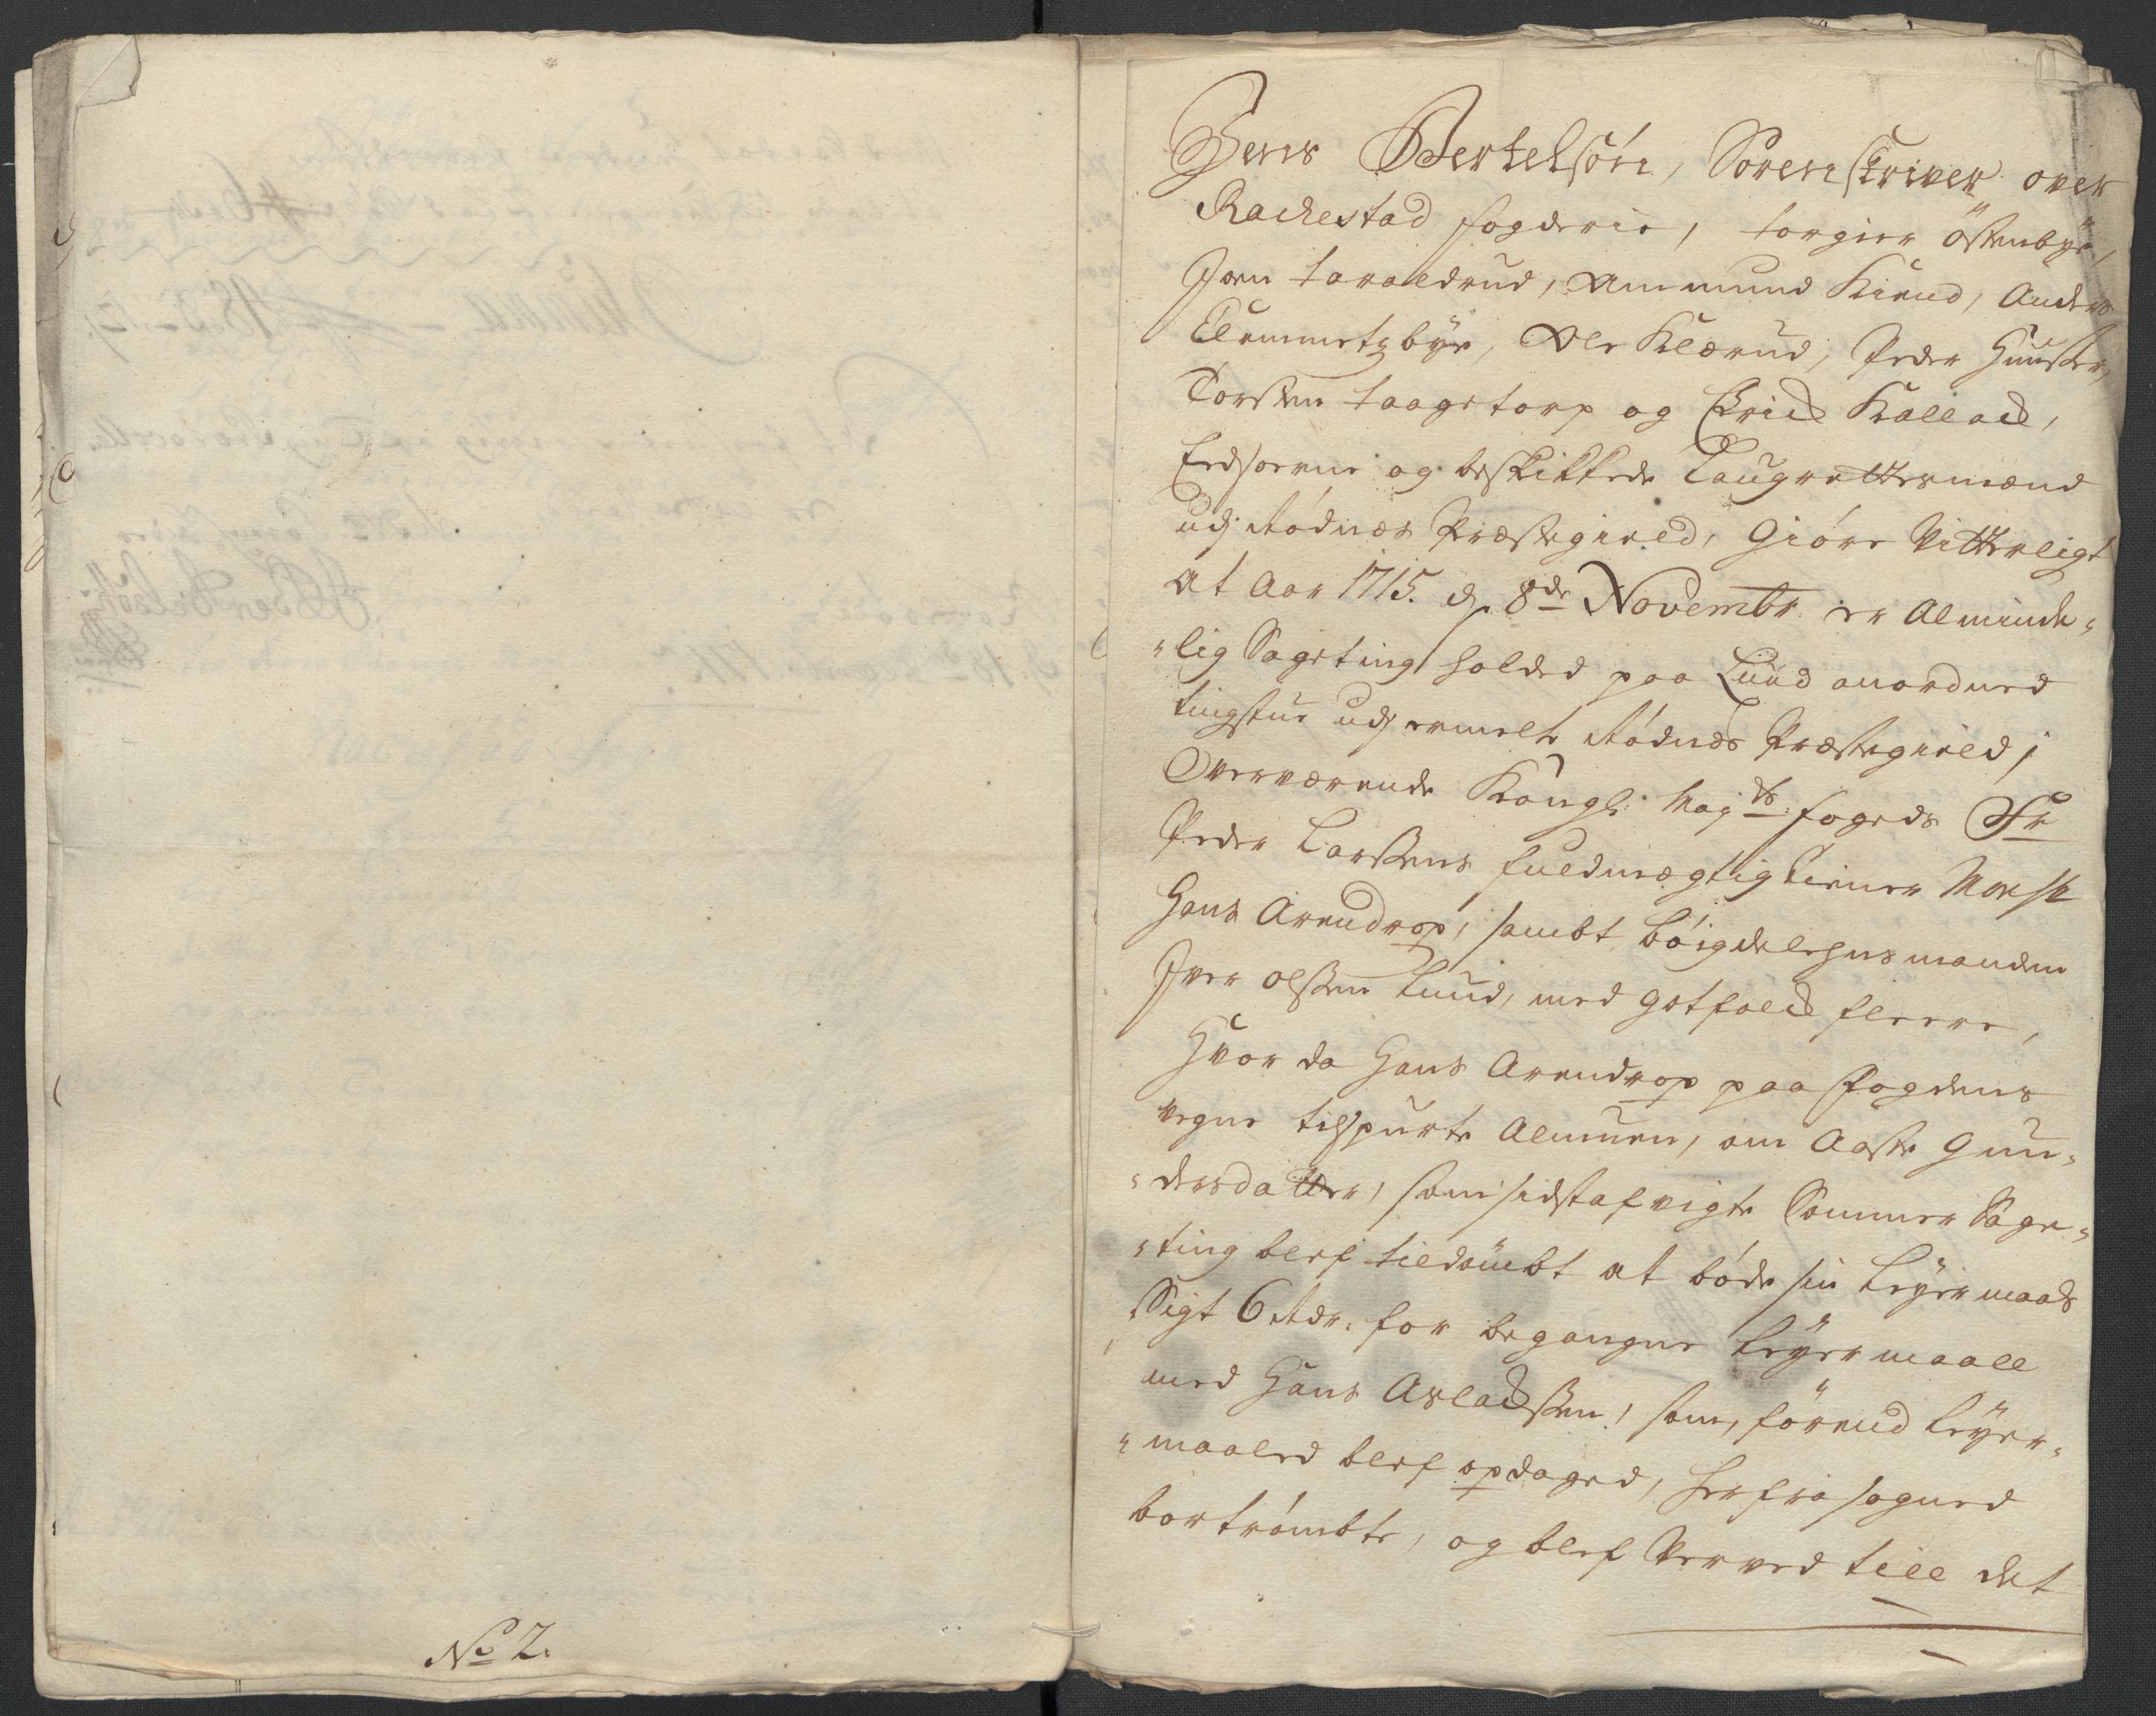 No 2.
Jens Bertelsön, Sorenskriver over
Rachestad fogderie, torgier östenbye,
Joen taraldrud, Ammund Kirud, Anders
Clemmetzbye, Ole Klærud, Peder Huuser,
Torsten taagetorp og Erich Kallach,
Eedsorne og beskikkede Laugrettesmænd
udj Rödnæs Præstegield, Giöre Vitterligt
at Aar 1715. d. 8de Novembr. er Alminde-
-lig Sageting holdet paa Luud anordned
tingstue udj ermelte Rödnæs Præstegield, j
Overværende Kongl: Mayts: fogeds Sr
Peder Larssens fuldmægtig tiener Monsr
Hans Arendrop, sambt böigdelehnsmanden
Iver olssen Luud, med gotfolch fleere,
Hvor da Hans Arendrop paa Fogdens
vegne tilspurte Almuen, om Aaste Gun-
-dersdatter, som sidstafvigte Sommer Sage-
-ting blef tildömbt at böde sin Leyermaals
Sigt 6 Rdr: for begangne Leyermaall
med Hans Aslachsen, som, förend Leyer-
-maaled blef opdaged, herfra sogned
bortrömbte, og blef Verved till det